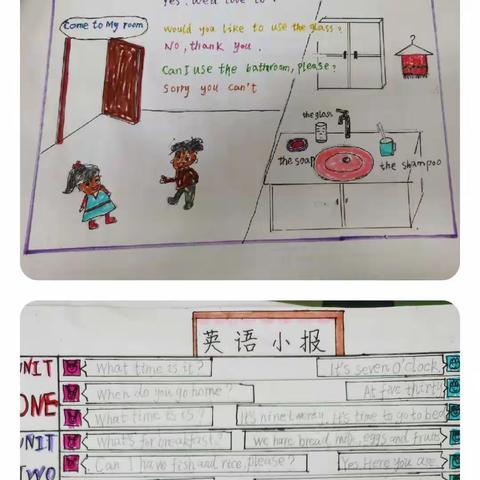 Yes. We'd love to.
Come to My room
would you like to use the glass?
No, thank you.
Can I use the bathroom, please?
Sorry you can't
the glass
the soap
the shampoo
英语小报
UNIT
ONE
What time is it?
It's seven O'clock
When do you go home?
At five thirty
What time is is?
It's nine twenty. It's time to go to bed
UNIT
TWO
What's for breakfast?
We have bread, milk, eggs and fruits
Can I have fish and rice, please?
Yes. Here you are